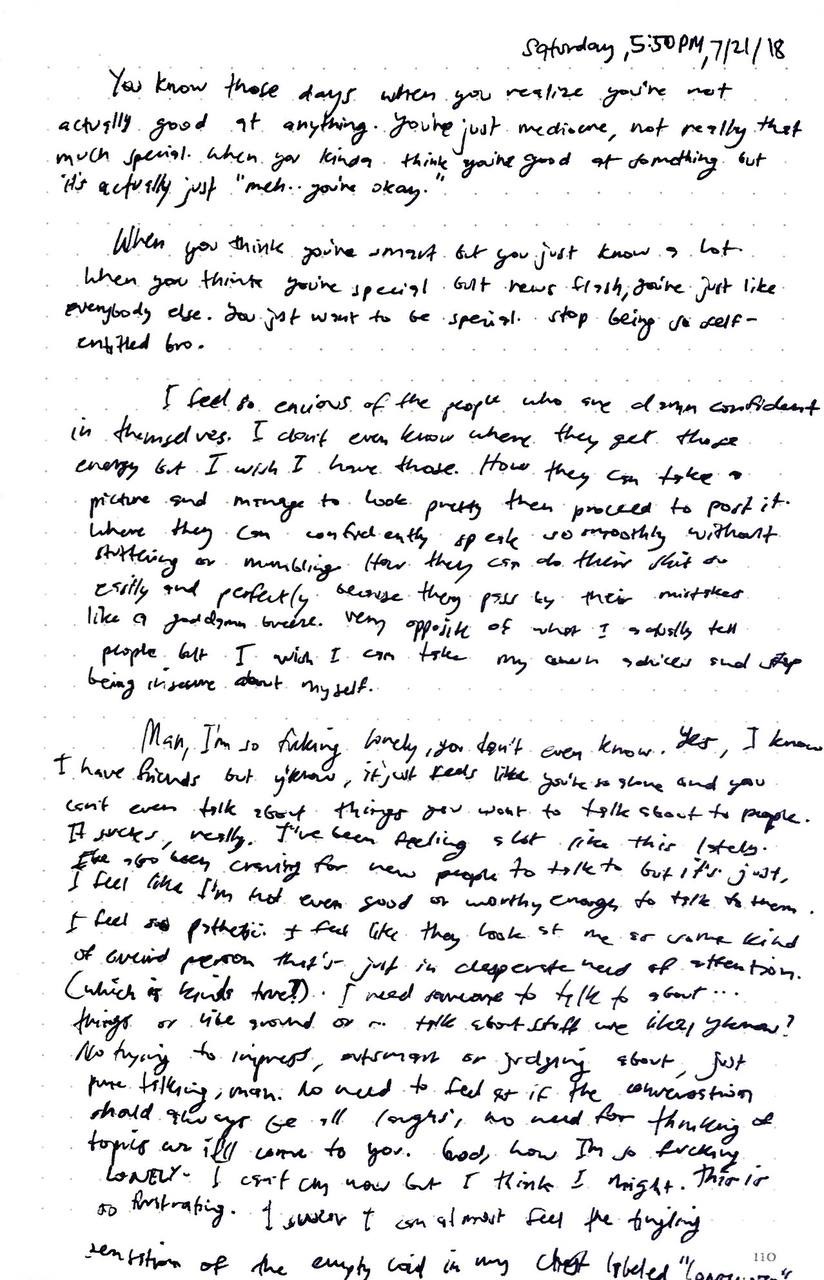 Saturday, 5:50PM, 7/21/18
You know those days when you realize you're not
actually good at anything. You're just mediocre, not really that
much special. When you kinda think you're good at something but
it's actually just "meh.. you're okay."
When you think you're smart but you just know a lot.
When you think you're special but news flash, you're just like
everybody else. You just want to be special. Stop being so self-
entitled bro.
I feel so envious of the people who are damn confident
in themselves. I don't even know where they get those
energy but I wish I have those. How they can take a
picture and manage to look pretty then proceed to post it.
Where they can confidently speak so smoothly without
stuttering or mumbling. How they can do their shit so
easily and perfectly because they pass by their mistakes
like a goddamn breeze. Very opposite of what I actually tell
people but I wish I can take my own advices and stop
being insecure about myself.
Man, I'm so fucking lonely, you don't even know. Yes, I know
I have friends but y'know, it just feels like you're so alone and you
can't even talk about things you want to talk about to people.
It sucks, really. I've been feeling a lot like this lately.
I've also been craving for new people to talk to but it's just,
I feel like I'm not even good or worthy enough to talk to them.
I feel so pathetic. I feel like they look at me as some kind
of weird person that's just in desperate need of attention.
(which is kinda true?). I need someone to talk to about...
things or like around or talk about stuff we like, y'know?
No trying to impress, outsmart or judging about, just
pure talking, man. No need to feel as if the conversation
should always be all laughs, no need for thinking of
topics it'll come to you. God, how I'm so fucking
LONELY. I can't cry now but I think I might. This is
so frustrating. I swear I can almost feel the tingling
sensation of the empty void in my chest labeled
110